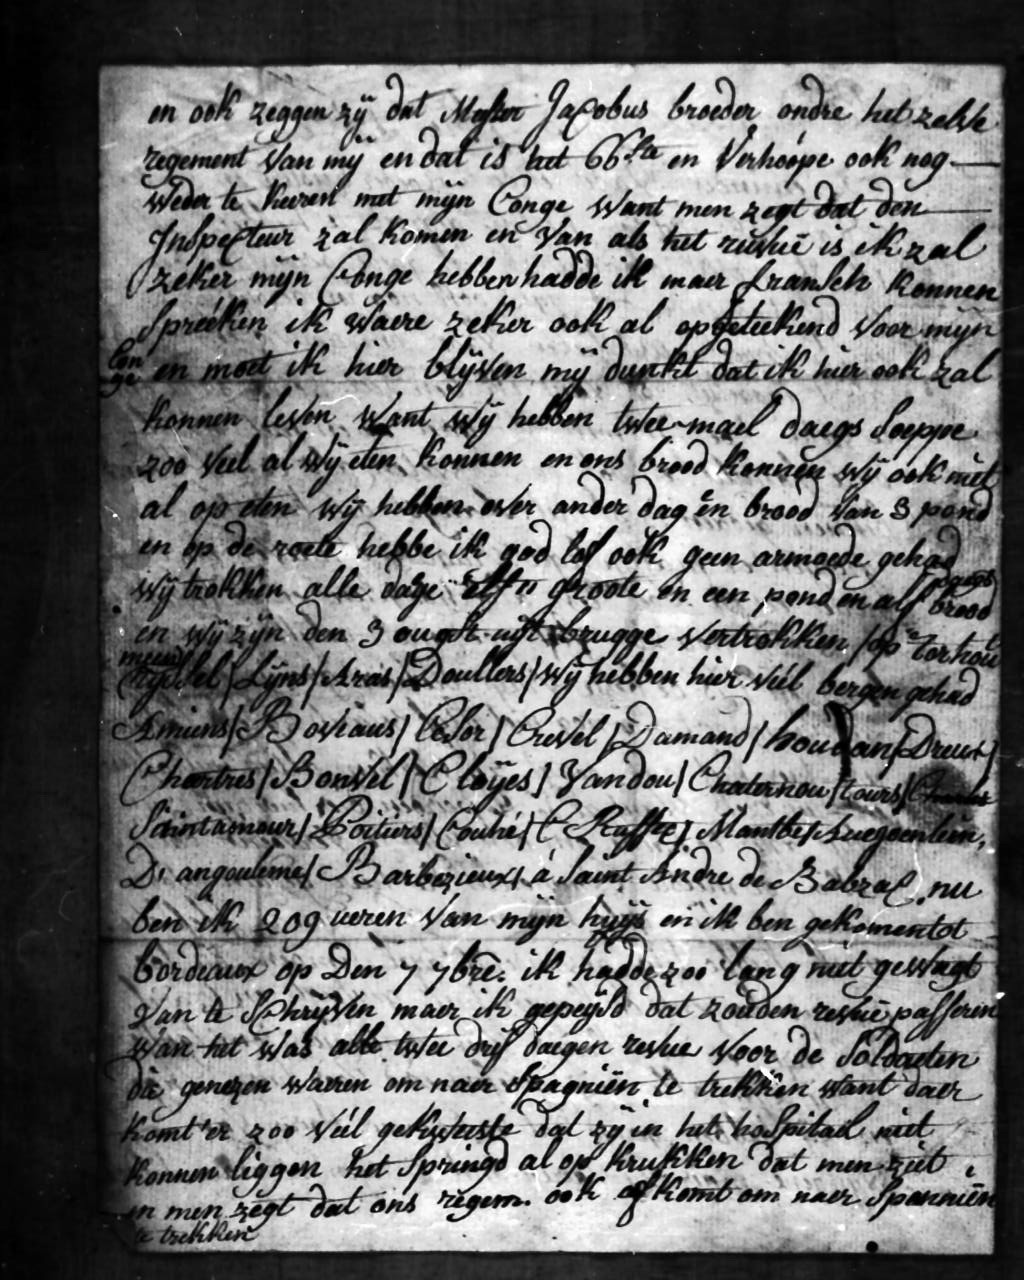 en ook zeggen zij dat Mester Jacobus broeder ondre het zelve
regement van mij en dat is het 66ste en Verhoope ook nog
weder te keeren met mijn Conge want men zegt dat den
Inspecteur zal komen en van als het revue is ik zal
zeker mijn Conge hebben hadde ik maer fransch konnen
spreéken ik waere zeker ook al opgeteekend voor mijn
Con
ge en moet ik hier blijven mij dunkt dat ik hier ook zal
konnen leven want wij hebben twee mael daegs soeppe
zoo veel al wij eten konnen en ons brood konnen wij ook niet
al op eten wij hebben over ander dag en brood van 3 pond
en op de roete hebbe ik god lof ook geen armoede gehad
wij trokken alle dage elf groote en een pond en alf brood
en wij zijn den 3 ougst uijt brugge vertrokken / op torhout
Ryssel / Lijns / Aras / Doullers / wij hebben hier véél bergen gehad
Amiens / Boviaus / / Crevel / Damand / houdan / Dreux /
Chartres / Bonvel / Cloijes / Vandou / Chaternou / tours /
Saintamour / Poitiers / Couhé / Ruffec / Mantbe /
D'angouleme / Barbezieux / á Saint Andre de Babzac, nu
ben ik 209 ueren van mijn huijs en ik ben gekomen tot
bordeaux op Den 7 7bre. ik hadde zoo lang niet gewagt
van te schrijven maer ik gepeijsd dat zouden revue passeren
wan het was alle twee drij daegen revue voor de soldaeten
die genezen waeren om naer Spagniën te trekken want daer
komt'er zoo véél gekweeste dat zij in het hospitael niet
konnen liggen het springd al op krukken dat men ziet
en men zegt dat ons regem. ook af komt om naer Spanniën
te trekken